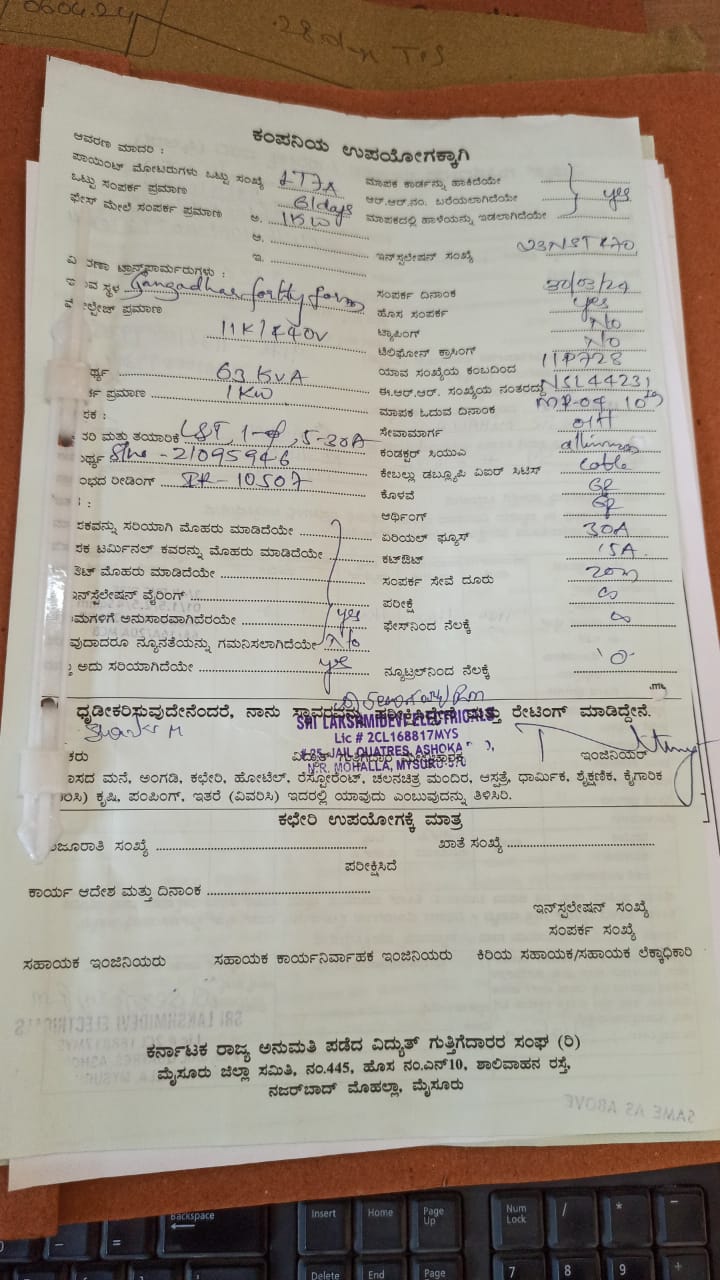 0604.24
28 days TPS
ಕಂಪನಿಯ ಉಪಯೋಗಕ್ಕಾಗಿ
ಆವರಣ ಮಾದರಿ :
ಪಾಯಿಂಟ್ ಮೋಟರುಗಳು ಒಟ್ಟು ಸಂಖ್ಯೆ LT7A ಮಾಪಕ ಕಾರ್ಡನ್ನು ಹಾಕಿದೆಯೇ
ಒಟ್ಟು ಸಂಪರ್ಕ ಪ್ರಮಾಣ days ಆರ್.ಆರ್.ನಂ. ಬರೆಯಲಾಗಿದೆಯೇ yes
ಫೇಸ್ ಮೇಲೆ ಸಂಪರ್ಕ ಪ್ರಮಾಣ ಅ. 1KW ಮಾಪಕದಲ್ಲಿ ಹಾಳೆಯನ್ನು ಇಡಲಾಗಿದೆಯೇ
ಆ.
ಇ. ಇನ್‌ಸ್ಟಲೇಷನ್ ಸಂಖ್ಯೆ
ತರಣಾ ಟ್ರಾನ್ಸ್‌ಫಾರ್ಮರುಗಳು :
ಸ್ಥಳ Gangadhar farm ಸಂಪರ್ಕ ದಿನಾಂಕ 30/03/24
ಹೊಸ ಸಂಪರ್ಕ yes
ವೋಲ್ಟೇಜ್ ಪ್ರಮಾಣ 11K/440V ಟ್ಯಾಪಿಂಗ್ No
ಟೆಲಿಫೋನ್ ಕ್ರಾಸಿಂಗ್ No
ರ್ಥ್ಯ 63 KVA ಯಾವ ಸಂಖ್ಯೆಯ ಕಂಬದಿಂದ 11P728
ರ್ಕ ಪ್ರಮಾಣ 1KW ಈ.ಆರ್.ಆರ್. ಸಂಖ್ಯೆಯ ನಂತರದ್ದು NSL44231
ಪಕ : ಮಾಪಕ ಓದುವ ದಿನಾಂಕ MR-04
ತರಿ ಮತ್ತು ತಯಾರಿಕೆ L&T, 1-φ, 5-30A ಸೇವಾಮಾರ್ಗ O/H
ರ್ಥ್ಯ Slno - 21095946 ಕಂಡಕ್ಟರ್ ಸಿಯುಎ
ಂಭದ ರೀಡಿಂಗ್ IR-10507 ಕೇಬಲ್ಲು ಡಬ್ಲ್ಯೂಪಿ ಏಐರ್ ಸಿಟಿಸ್ cable
ಕೊಳವೆ GP
: ಆರ್ಥಿಂಗ್ GP
ಪಕವನ್ನು ಸರಿಯಾಗಿ ಮೊಹರು ಮಾಡಿದೆಯೇ ಏರಿಯಲ್ ಫ್ಯೂಸ್ 30A
ಪಕ ಟರ್ಮಿನಲ್ ಕವರನ್ನು ಮೊಹರು ಮಾಡಿದೆಯೇ ಕಟ್‌ಔಟ್ 15A
ಟ್ ಮೊಹರು ಮಾಡಿದೆಯೇ ಸಂಪರ್ಕ ಸೇವೆ ದೂರು 20m
ಇನ್‌ಸ್ಟಲೇಷನ್ ವೈರಿಂಗ್ ಪರೀಕ್ಷೆ ∞
ಯಮಗಳಿಗೆ ಅನುಸಾರವಾಗಿದೆರೆಯೇ yes ಫೇಸ್‌ನಿಂದ ನೆಲಕ್ಕೆ ∞
ವುದಾದರೂ ನ್ಯೂನತೆಯನ್ನು ಗಮನಿಸಲಾಗಿದೆಯೇ No
ಅದು ಸರಿಯಾಗಿದೆಯೇ yes ನ್ಯೂಟ್ರಲ್‌ನಿಂದ ನೆಲಕ್ಕೆ '0'
ಧೃಡೀಕರಿಸುವುದೇನೆಂದರೆ, ನಾನು ಸ್ಥಾವರವನ್ನು ಪರೀಕ್ಷಿಸಿದ್ದೇನೆ ಮತ್ತು ರೇಟಿಂಗ್ ಮಾಡಿದ್ದೇನೆ.
Shankar M
SRI LAKSHMIDEVI ELECTRICALS
Lic # 2CL168817MYS
# 25, JAIL QUATRES, ASHOKA
N.R. MOHALLA, MYSURU
ಕರು ವಿದ್ಯುತ್ ಗುತ್ತಿಗೆದಾರ ಇಂಜಿನಿಯರ್
ಾಸದ ಮನೆ, ಅಂಗಡಿ, ಕಛೇರಿ, ಹೋಟೆಲ್, ರೆಸ್ಟೋರೆಂಟ್, ಚಲನಚಿತ್ರ ಮಂದಿರ, ಆಸ್ಪತ್ರೆ, ಧಾರ್ಮಿಕ, ಶೈಕ್ಷಣಿಕ, ಕೈಗಾರಿಕ
ರಿಸಿ) ಕೃಷಿ, ಪಂಪಿಂಗ್, ಇತರೆ (ವಿವರಿಸಿ) ಇದರಲ್ಲಿ ಯಾವುದು ಎಂಬುವುದನ್ನು ತಿಳಿಸಿರಿ.
ಕಛೇರಿ ಉಪಯೋಗಕ್ಕೆ ಮಾತ್ರ
ಂಜೂರಾತಿ ಸಂಖ್ಯೆ ಖಾತೆ ಸಂಖ್ಯೆ
ಪರೀಕ್ಷಿಸಿದೆ
ಕಾರ್ಯ ಆದೇಶ ಮತ್ತು ದಿನಾಂಕ
ಇನ್‌ಸ್ಟಲೇಷನ್ ಸಂಖ್ಯೆ
ಸಂಪರ್ಕ ಸಂಖ್ಯೆ
ಸಹಾಯಕ ಇಂಜಿನಿಯರು ಸಹಾಯಕ ಕಾರ್ಯನಿರ್ವಾಹಕ ಇಂಜಿನಿಯರು ಕಿರಿಯ ಸಹಾಯಕ/ಸಹಾಯಕ ಲೆಕ್ಕಾಧಿಕಾರಿ
ಕರ್ನಾಟಕ ರಾಜ್ಯ ಅನುಮತಿ ಪಡೆದ ವಿದ್ಯುತ್ ಗುತ್ತಿಗೆದಾರರ ಸಂಘ (ರಿ)
ಮೈಸೂರು ಜಿಲ್ಲಾ ಸಮಿತಿ, ನಂ.445, ಹೊಸ ನಂ.ಎನ್10, ಶಾಲಿವಾಹನ ರಸ್ತೆ,
ನಜರ್‌ಬಾದ್ ಮೊಹಲ್ಲಾ, ಮೈಸೂರು
SAME AS ABOVE
Backspace Insert Home Page Up Num Lock / * -
= Delete End Page 7 8 9 +